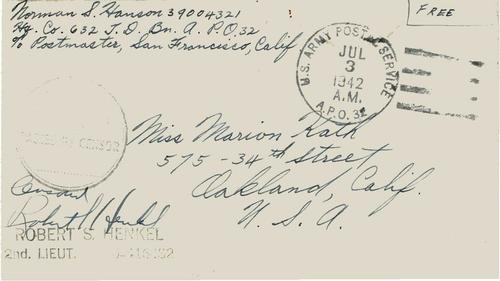 Norman S. Hanson 39004321
Hq. Co. 632 T.D. Bn. A.P.O. 32
℅ Postmaster, San Francisco, Calif
FREE
U.S. ARMY POSTAL SERVICE
JUL
3
1942
A.M.
A.P.O. 32
PASSED BY CENSOR
Miss Marion Kath
575-34th Street
Oakland, Calif.
U.S.A.
Censored
Robert S Henkel
ROBERT S. HENKEL
2nd. LIEUT.